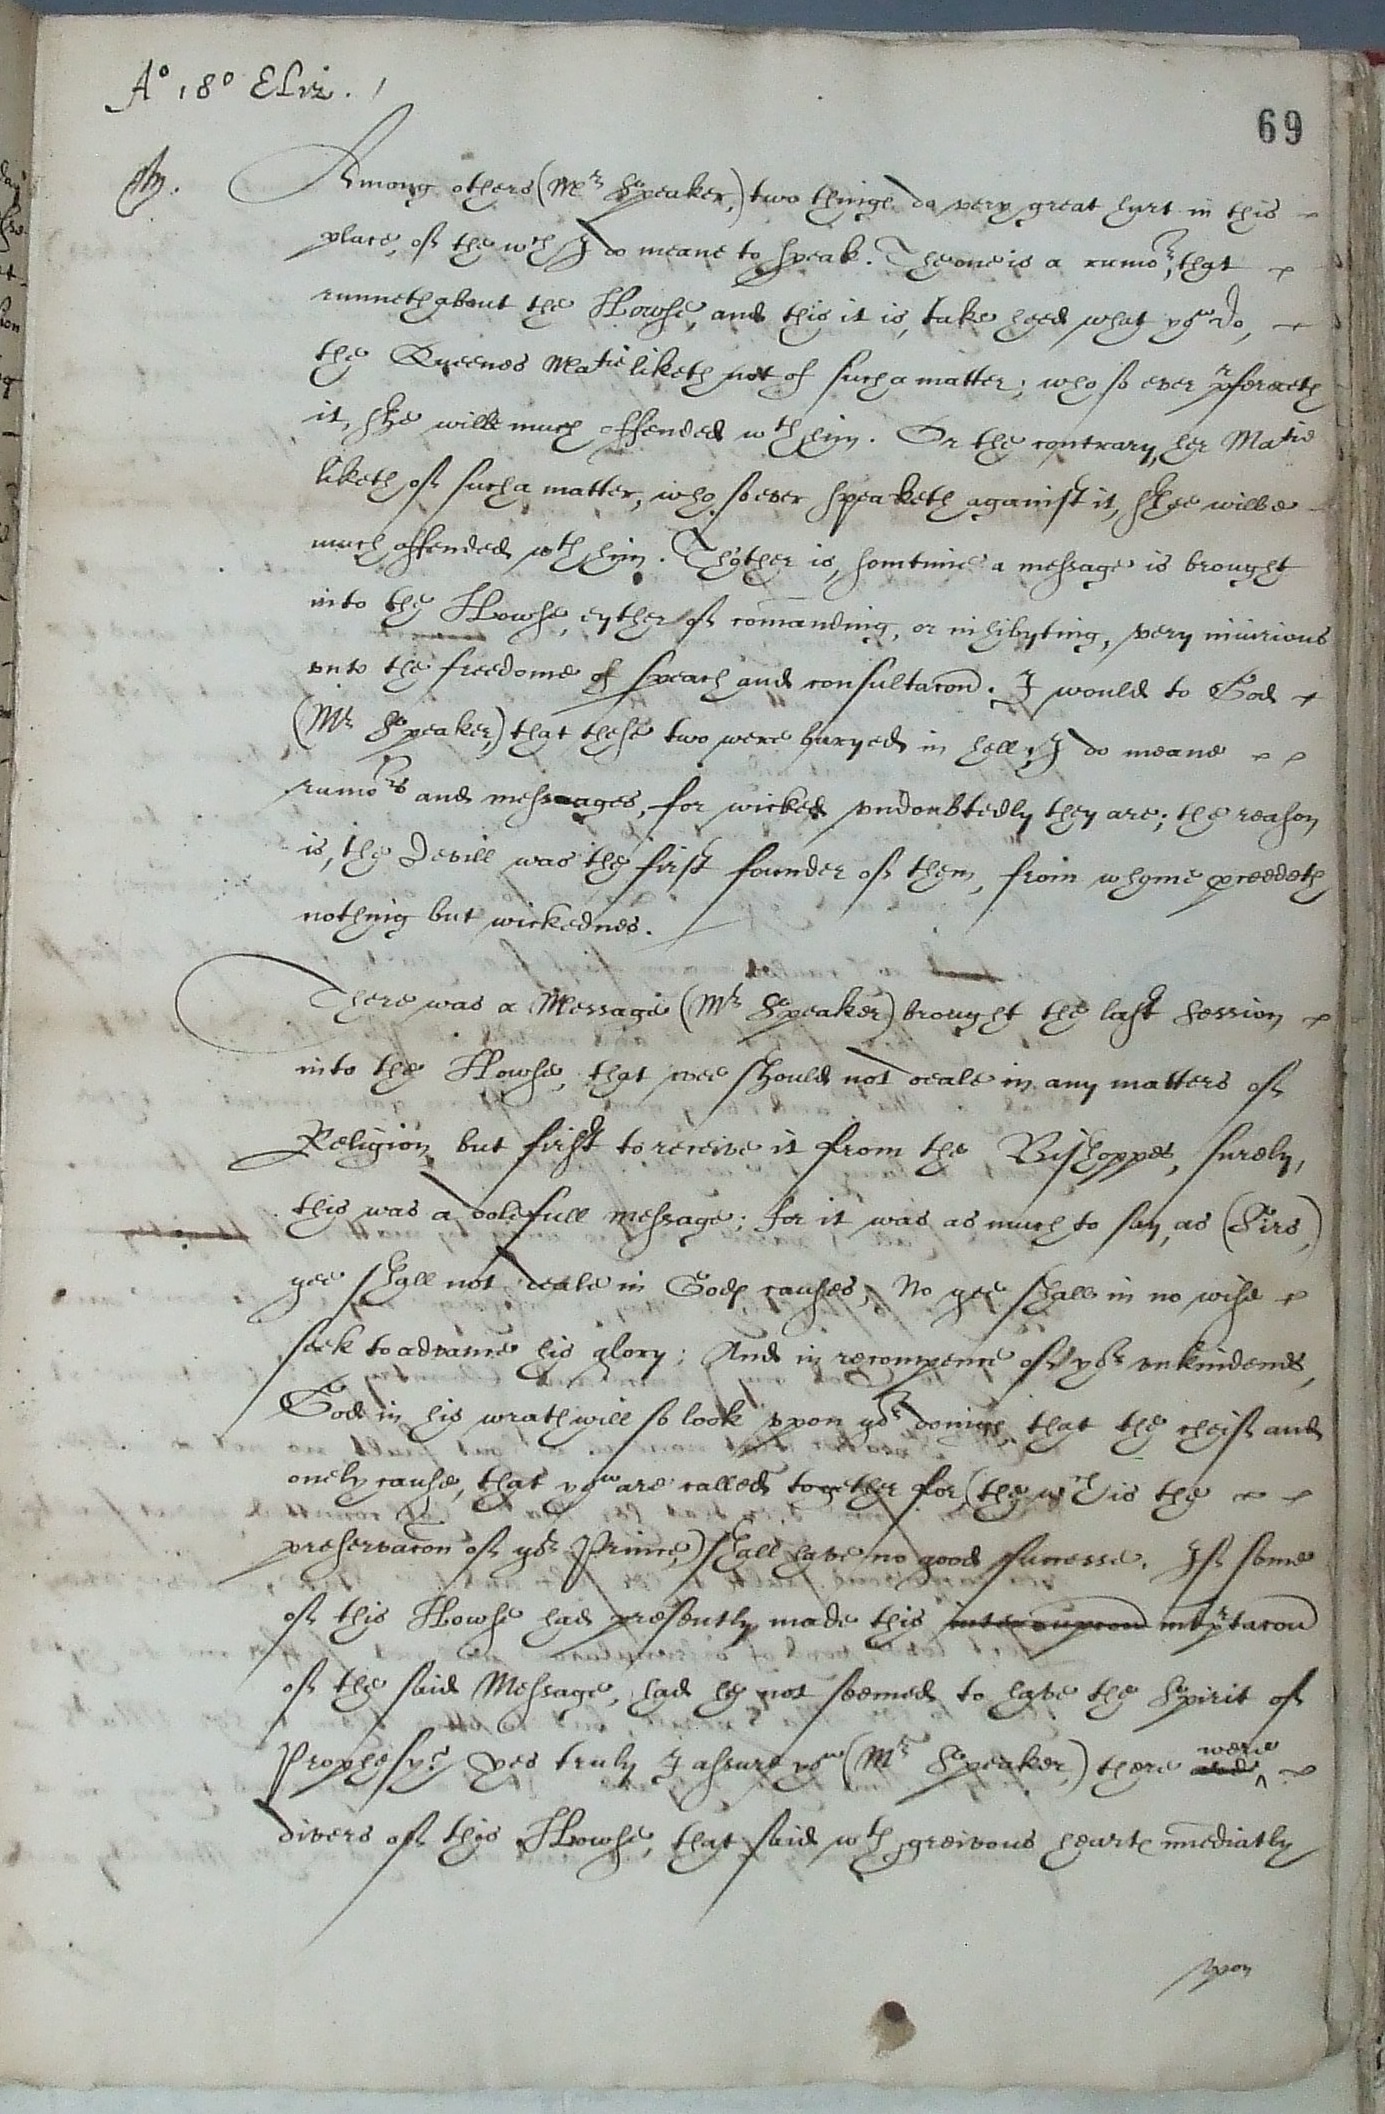 Ao 18o Eliz.
69
Among others (Mr Speaker,) two things do very great hurt in this
place, of the wch I do meane to speak. The one is a rumor, that
runneth about the Howse, and this it is, take heed what you do,
the Queenes Matie liketh not of such a matter; who so ever prferreth
it, she wilbe much offended wth him. Or the contrary, her Matie
liketh of such a matter, who so ever speaketh against it, shee wilbe
much offended wth him. Th'other is, somtime a message is brought
into the Howse, eyther of comanding, or inhibyting, very iniurious
vnto the freedome of speach and consultacon. I would to God
(Mr Speaker,) that these two were buryed in hell, I do meane
rumors and messages, for wicked vndoubtedly they are; the reason
is, the Devill was the first founder of them, from whome proceedeth
nothing but wickednes.
There was a Message (Mr Speaker) brought the last session
into the Howse, that wee should not deale in any matters of
Religion, but first to receive it from the Bishoppes, surely,
this was a dolefull message; for it was as much to say, as (Sirs,)
yee shall not deale in Gods causes, No yee shall in no wise
seek to advance his glory; And in recompence of yor vnkindenes,
God in his wrath will so look vpon yor doings, that the cheif and
onely cause, that you are called together for, (the wch is the
preservacon of yor Prince,) shall have no good successe. If some
of this Howse had presently made this interrupcon intrptacon
of the said Message, had he not seemed to have the Spirit of
Prophesy? Yes truly I assure you (Mr Speaker,) there are were
divers of this Howse, that said wth greivous hearts imediatly
vpon